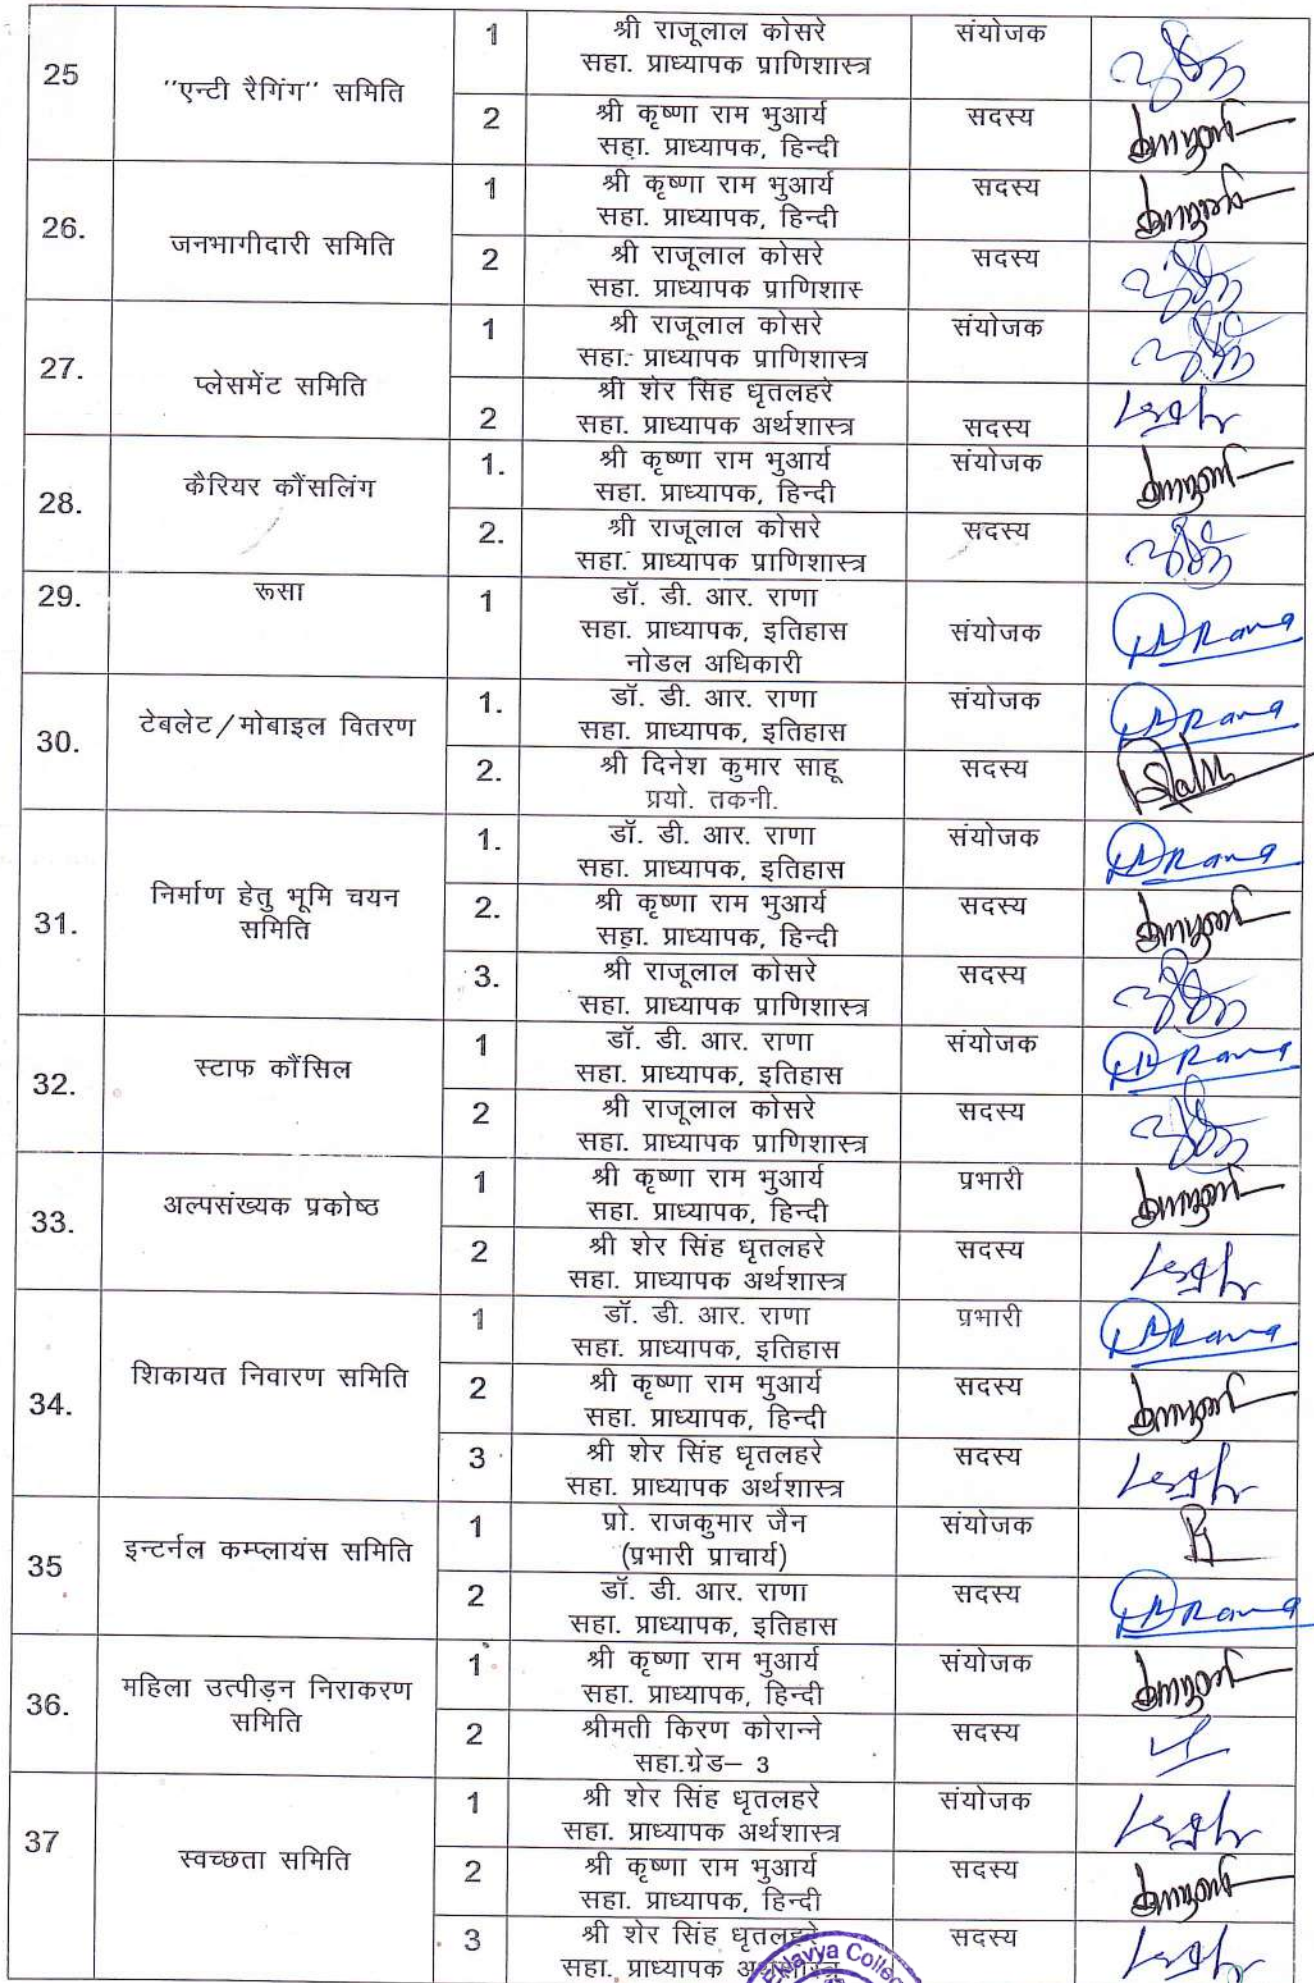 25
"एन्टी रैगिंग" समिति
1
श्री राजूलाल कोसरे
सहा. प्राध्यापक प्राणिशास्त्र
संयोजक
2
श्री कृष्णा राम भुआर्य
सहा. प्राध्यापक, हिन्दी
सदस्य
26.
जनभागीदारी समिति
1
श्री कृष्णा राम भुआर्य
सहा. प्राध्यापक, हिन्दी
सदस्य
2
श्री राजूलाल कोसरे
सहा. प्राध्यापक प्राणिशास
सदस्य
27.
प्लेसमेंट समिति
1
श्री राजूलाल कोसरे
सहा. प्राध्यापक प्राणिशास्त्र
संयोजक
2
श्री शेर सिंह धृतलहरे
सहा. प्राध्यापक अर्थशास्त्र
सदस्य
28.
कैरियर कौंसलिंग
1.
श्री कृष्णा राम भुआर्य
सहा. प्राध्यापक, हिन्दी
संयोजक
2.
श्री राजूलाल कोसरे
सहा. प्राध्यापक प्राणिशास्त्र
सदस्य
29.
रूसा
1
डॉ. डी. आर. राणा
सहा. प्राध्यापक, इतिहास
नोडल अधिकारी
संयोजक
30.
टेबलेट/मोबाइल वितरण
1.
डॉ. डी. आर. राणा
सहा. प्राध्यापक, इतिहास
संयोजक
2.
श्री दिनेश कुमार साहू
प्रयो. तकनी.
सदस्य
31.
निर्माण हेतु भूमि चयन
समिति
1.
डॉ. डी. आर. राणा
सहा. प्राध्यापक, इतिहास
संयोजक
2.
श्री कृष्णा राम भुआर्य
सहा. प्राध्यापक, हिन्दी
सदस्य
3.
श्री राजूलाल कोसरे
सहा. प्राध्यापक प्राणिशास्त्र
सदस्य
32.
स्टाफ कौंसिल
1
डॉ. डी. आर. राणा
सहा. प्राध्यापक, इतिहास
संयोजक
2
श्री राजूलाल कोसरे
सहा. प्राध्यापक प्राणिशास्त्र
सदस्य
33.
अल्पसंख्यक प्रकोष्ठ
1
श्री कृष्णा राम भुआर्य
सहा. प्राध्यापक, हिन्दी
प्रभारी
2
श्री शेर सिंह धृतलहरे
सहा. प्राध्यापक अर्थशास्त्र
सदस्य
34.
शिकायत निवारण समिति
1
डॉ. डी. आर. राणा
सहा. प्राध्यापक, इतिहास
प्रभारी
2
श्री कृष्णा राम भुआर्य
सहा. प्राध्यापक, हिन्दी
सदस्य
3
श्री शेर सिंह धृतलहरे
सहा. प्राध्यापक अर्थशास्त्र
सदस्य
35
इन्टर्नल कम्प्लायंस समिति
1
प्रो. राजकुमार जैन
(प्रभारी प्राचार्य)
संयोजक
2
डॉ. डी. आर. राणा
सहा. प्राध्यापक, इतिहास
सदस्य
36.
महिला उत्पीड़न निराकरण
समिति
1
श्री कृष्णा राम भुआर्य
सहा. प्राध्यापक, हिन्दी
संयोजक
2
श्रीमती किरण कोरान्ने
सहा.ग्रेड– 3
सदस्य
37
स्वच्छता समिति
1
श्री शेर सिंह धृतलहरे
सहा. प्राध्यापक अर्थशास्त्र
संयोजक
2
श्री कृष्णा राम भुआर्य
सहा. प्राध्यापक, हिन्दी
सदस्य
3
श्री शेर सिंह धृतलहरे
सहा. प्राध्यापक अर्थशास्त्र
सदस्य